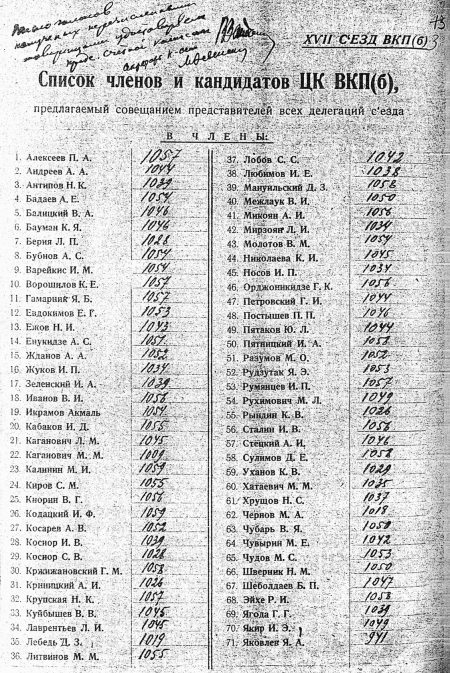 13
XVII С'ЕЗД ВКП(б)
Список членов и кандидатов ЦК ВКП(б),
предлагаемый совещанием представителей всех делегаций с'езда
В ЧЛЕНЫ:
1. Алексеев П. А. 1057
2. Андреев А. А. 1044
3. Антипов Н. К. 1039
4. Бадаев А. Е. 1054
5. Балицкий В. А. 1046
6. Бауман К. Я. 1046
7. Берия Л. П. 1028
8. Бубнов А. С. 1054
9. Варейкис И. М. 1054
10. Ворошилов К. Е. 1057
11. Гамарник Я. Б. 1057
12. Евдокимов Е. Г. 1053
13. Ежов Н. И. 1043
14. Енукидзе А. С. 1051
15. Жданов А. А. 1052
16. Жуков И. П. 1034
17. Зеленский И. А. 1039
18. Иванов В. И. 1056
19. Икрамов Акмаль 1054
20. Кабаков И. Д. 1055
21. Каганович Л. М. 1045
22. Каганович М. М. 1009
23. Калинин М. И. 1059
24. Киров С. М. 1055
25. Кнорин В. Г. 1056
26. Кодацкий И. Ф. 1059
27. Косарев А. В. 1052
28. Косиор И. В. 1039
29. Косиор С. В. 1028
30. Кржижановский Г. М. 1058
31. Криницкий А. И. 1026
32. Крупская Н. К. 1057
33. Куйбышев В. В. 1045
34. Лаврентьев Л. И. 1045
35. Лебедь Д. З. 1019
36. Литвинов М. М. 1055
37. Лобов С. С. 1042
38. Любимов И. Е. 1038
39. Мануильский Д. З. 1058
40. Межлаук В. И. 1050
41. Микоян А. И. 1056
42. Мирзоян Л. И. 1034
43. Молотов В. М. 1054
44. Николаева К. И. 1045
45. Носов И. П. 1034
46. Орджоникидзе Г. К. 1056
47. Петровский Г. И. 1044
48. Постышев П. П. 1046
49. Пятаков Ю. Л. 1044
50. Пятницкий И. А. 1052
51. Разумов М. О. 1052
52. Рудзутак Я. Э. 1053
53. Румянцев И. П. 1057
54. Рухимович М. Л. 1049
55. Рындин К. В. 1026
56. Сталин И. В. 1056
57. Стецкий А. И. 1046
58. Сулимов Д. Е. 1058
59. Уханов К. В. 1029
60. Хатаевич М. М. 1035
61. Хрущов Н. С. 1037
62. Чернов М. А. 1018
63. Чубарь В. Я. 1050
64. Чувырин М. Е. 1042
65. Чудов М. С. 1053
66. Шверник Н. М. 1050
67. Шеболдаев Б. П. 1047
68. Эйхе Р. И. 1058
69. Ягода Г. Г. 1039
70. Якир И. Э. 1049
71. Яковлев Я. А. 941